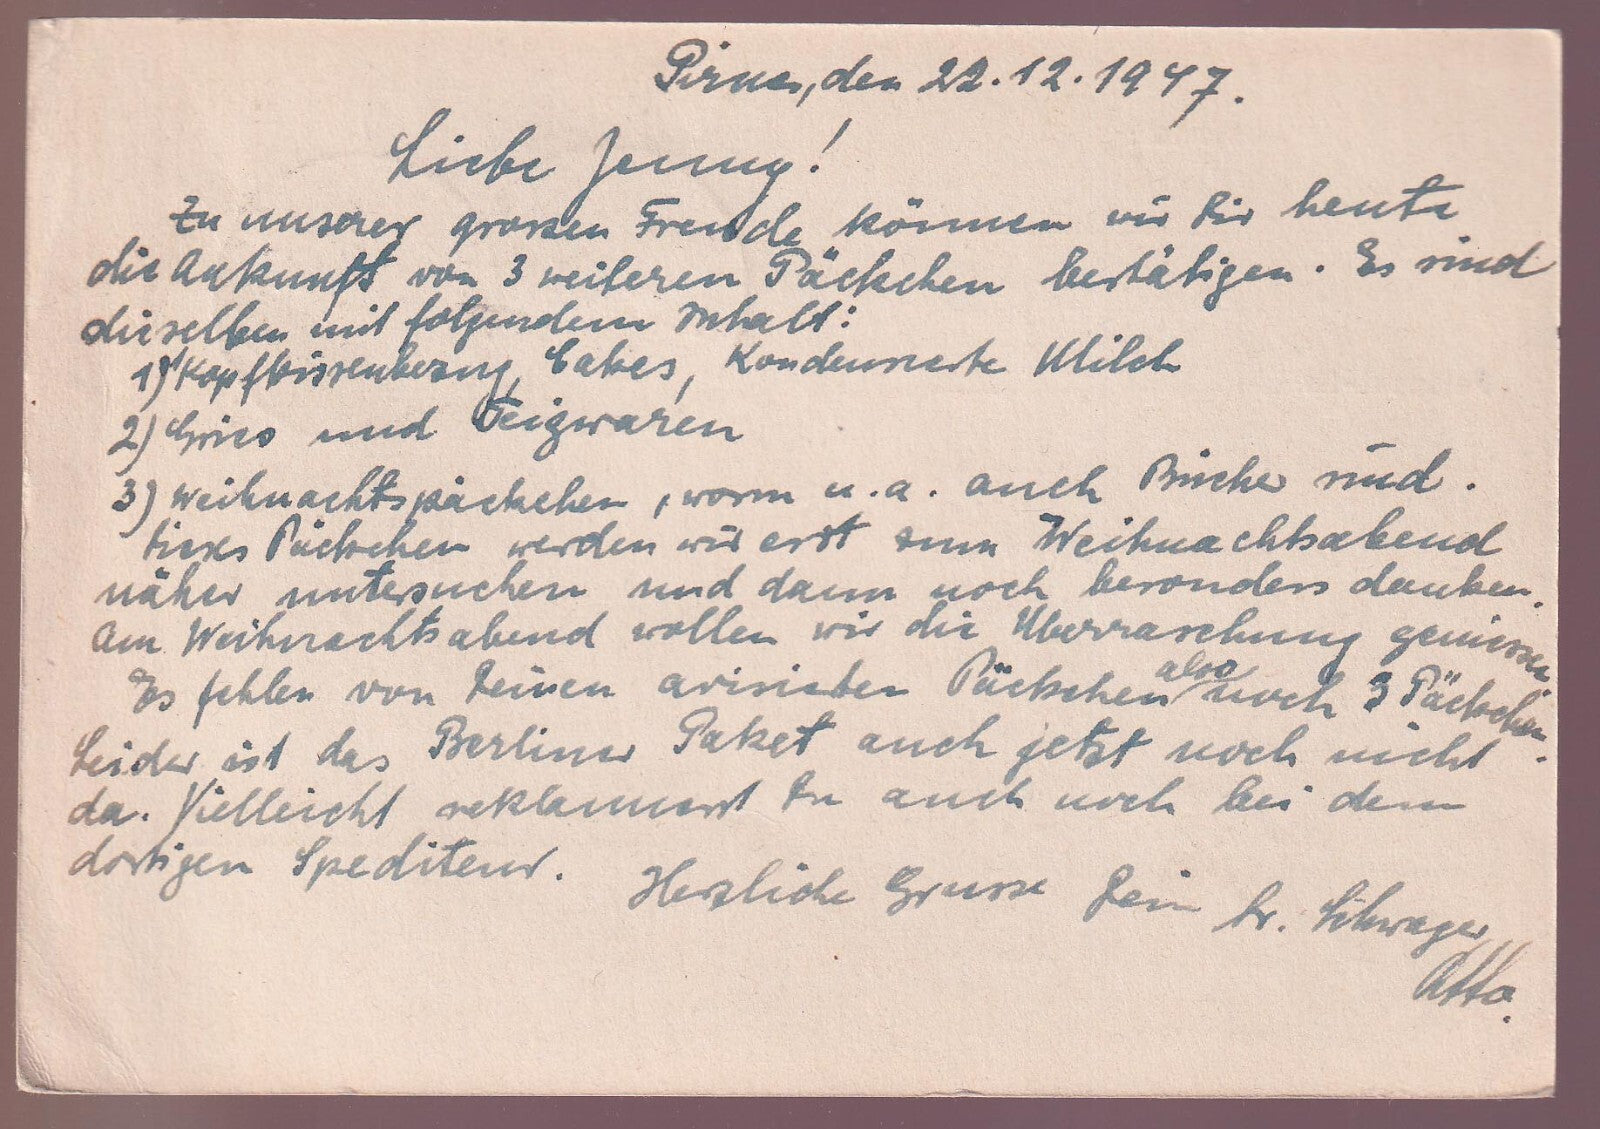 Pirna, den 22.12.1947.
Liebe Jenny!
Zu unserer grossen Freude können wir Dir heute
die Ankunft von 3 weiteren Päckchen bestätigen. Es sind
dieselben mit folgendem Inhalt:
1) Kopfkissenbezug, Cakes, Kondensierte Milch
2) Gries und Teigwaren
3) Weihnachtspäckchen, worin u.a. auch Bücher sind.
Dieses Päckchen werden wir erst zum Weihnachtsabend
näher untersuchen und dann noch besonders danken.
Am Weihnachtsabend wollen wir die Überraschung geniessen.
Es fehlen von Deinen avisierten Päckchen also noch 3 Päckchen.
Leider ist das Berliner Paket auch jetzt noch nicht
da. Vielleicht reklamierst Du auch noch bei dem
dortigen Spediteur.
Herzliche Grüsse Dein lb. Schwager
Otto.